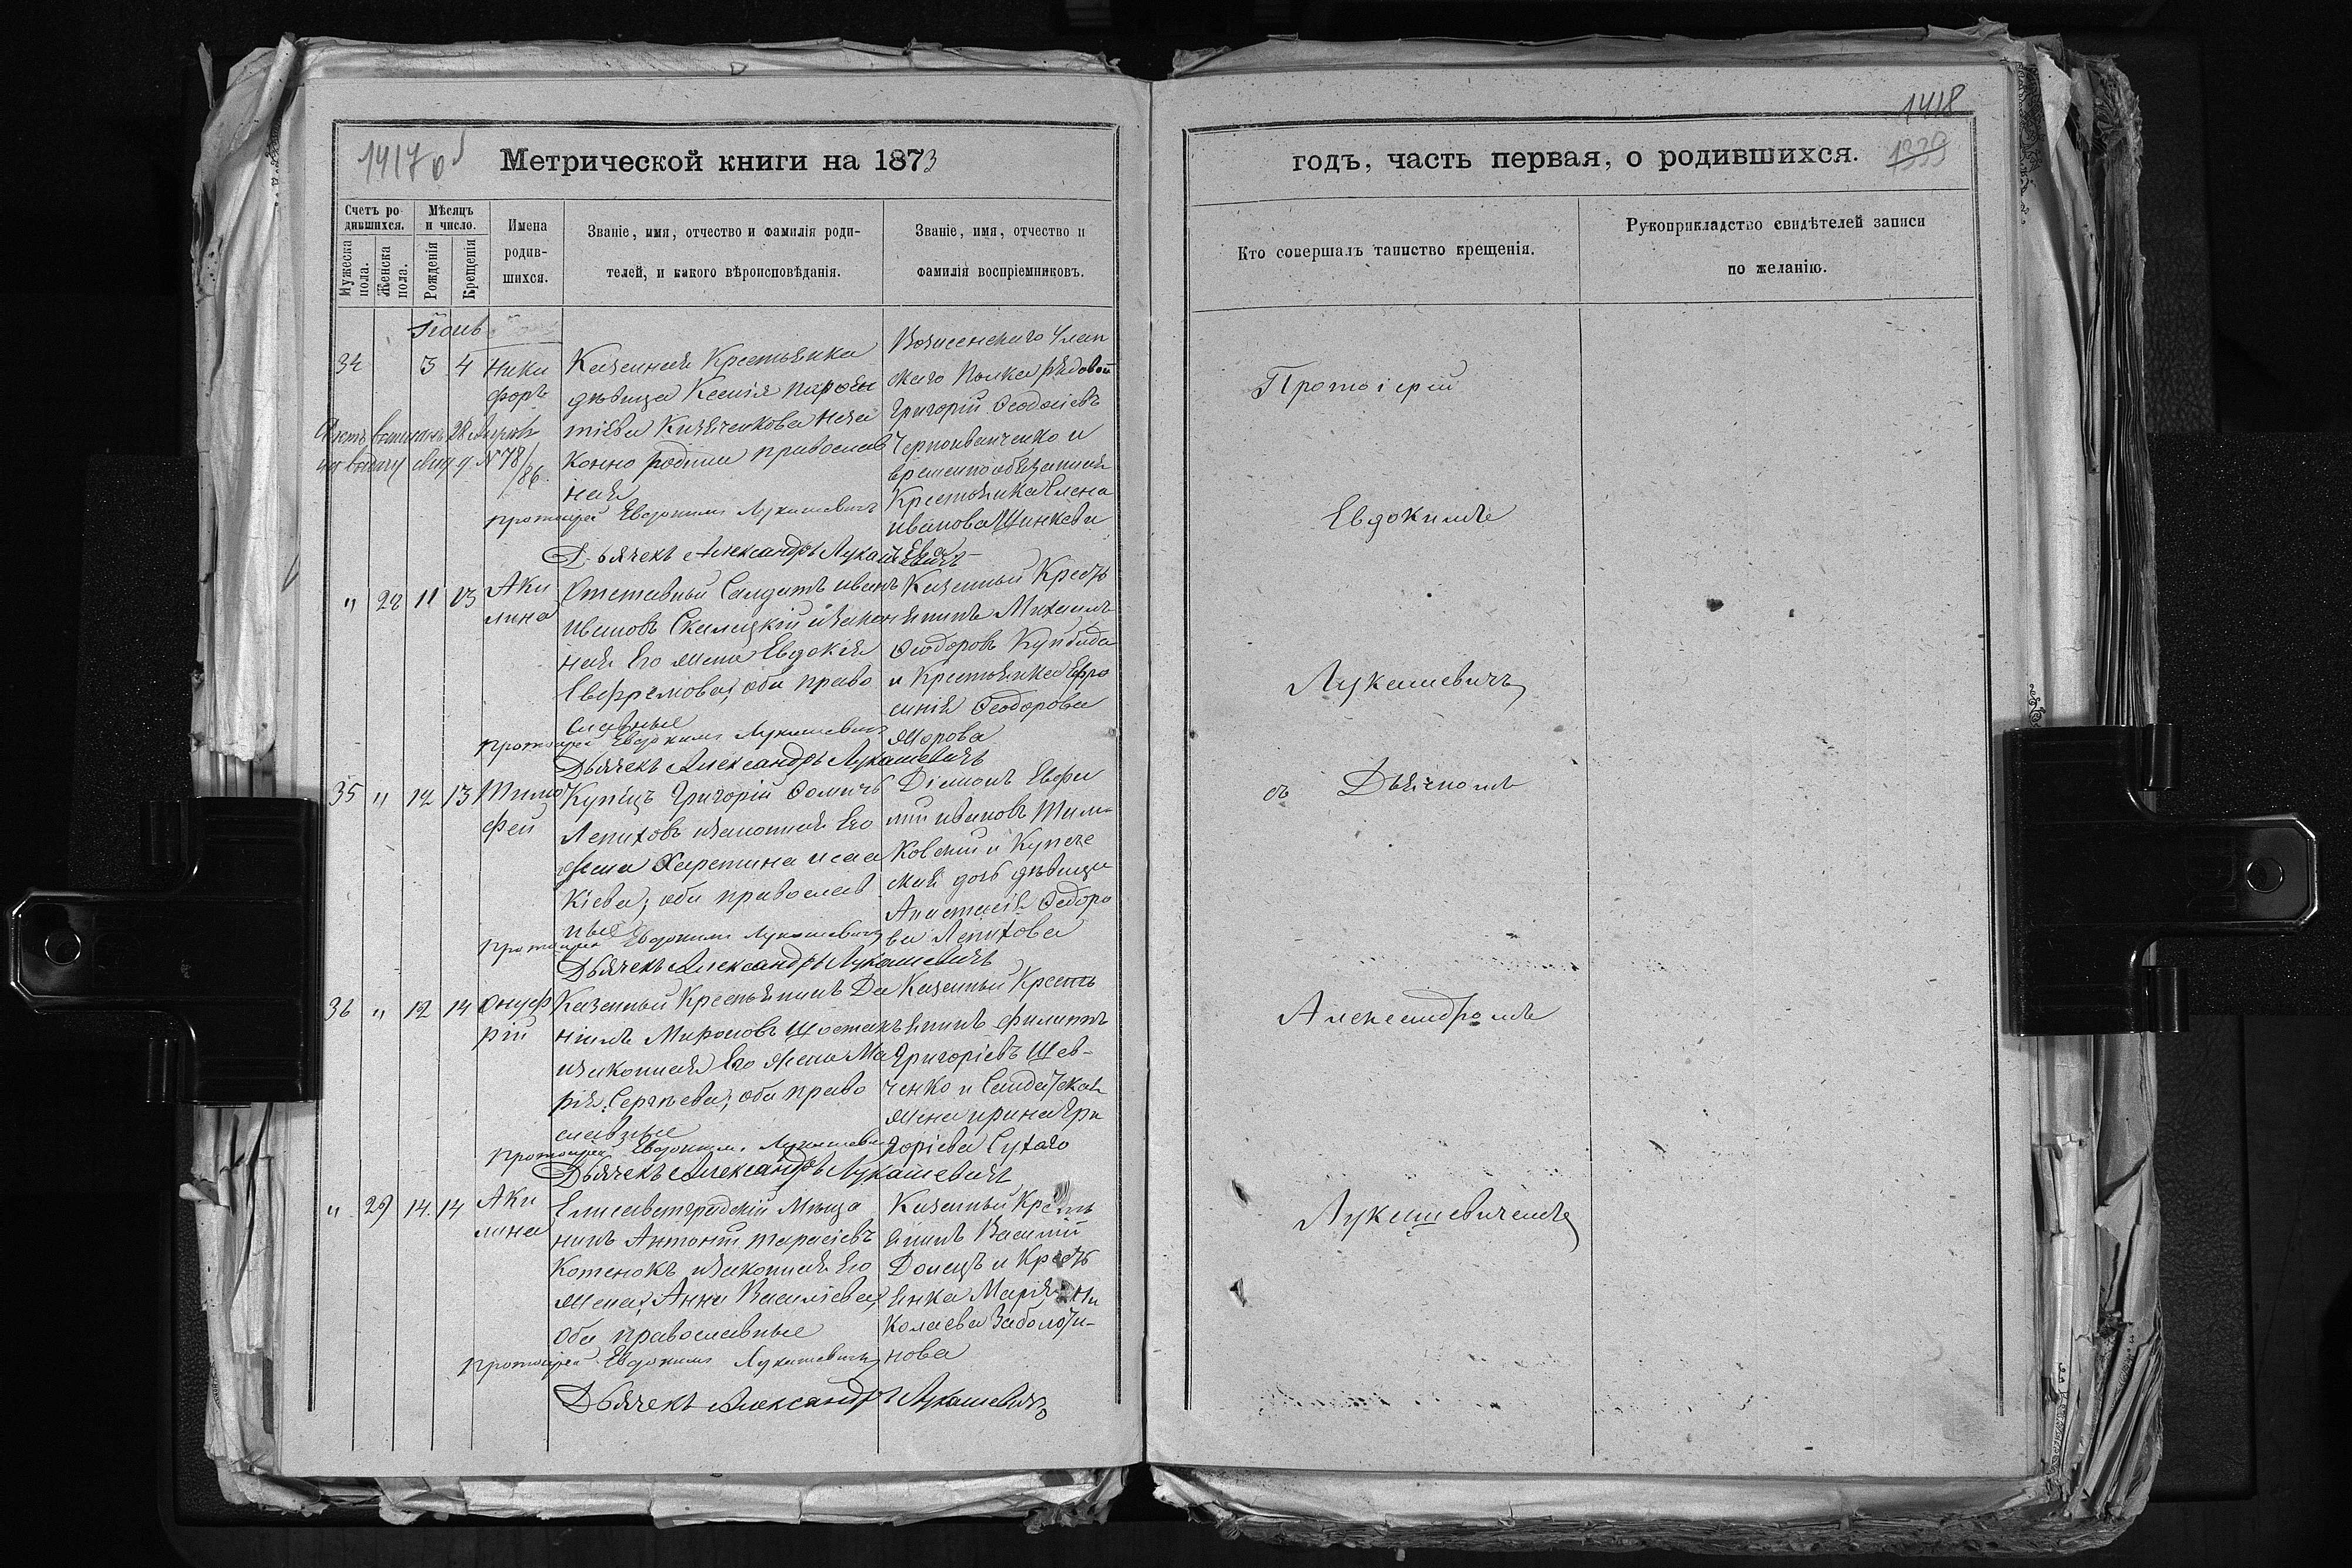 1417 об
Метрической книги на 1873
Счетъ ро-
дившихся.
Мѣсяцъ
и число.
Мужеска
пола.
Женска
пола.
Рожденія
Крещенія
Имена
родив-
шихся.
Званіе, имя, отчество и фамилія роди-
телей, и какого вѣроисповѣданія.
Званіе, имя, отчество и
фамилія воспріемниковъ.
Іюнь
34 3 4 Ники
форъ
Казенная Крестьянка
дѣвица Ксенія
Незa
конно родила православ
ная
Вознесенскаго Улан
скаго Полка рядовой
Григорій Феодосіевъ
Черноиванченко и
временнообязанная
Крестьянка Елена
Иванова
28
на выдачу № 78/86.
Протоіерей Евдокимъ Лукашевичъ
Дьячекъ Александръ Лукашевичъ
" 28 11 13 Аки
лина
Отставный Салдатъ Иванъ
Ивановъ и закон
ная Его жена Евдокія
Евфремова, оба право
славные
Казенный Кресть
янинъ Михаилъ
Феодоровъ
и Крестьянка Ефро
синія Феодорова
Протоіерей Евдокимъ Лукашевичъ
Дьячекъ Александръ Лукашевичъ
35 " 12 13 Тимо
фей
Купецъ Григорій Фомичъ
Лепиховъ и законная Его
жена Харитина Исаа
кіева, оба православ
ные
Діаконъ Евфи
мій Ивановъ Шим
ковскій и Купече
ская дочь дѣвица
Анастасія Федоро
ва Лепихова
Протоіерей Евдокимъ Лукашевичъ
Дьячекъ Александръ Лукашевичъ
36 " 12 14 Онуф
рій
Казенный Крестьянинъ Да
ніилъ Мироновъ Шостакъ
и законная Его жена Ма
рія Сергѣева, оба право
славные
Казенный Кресть
янинъ Филиппъ
Григоріевъ Шев-
ченко и Салдатская
жена Ирина Гри
горіева Сухаго
Протоіерей Евдокимъ Лукашевичъ
Дьячекъ Александръ Лукашевичъ
" 29 14 14 Аки
лина
Елисаветградскій Мѣща
нинъ Антоній Тарасіевъ
Котенокъ и законная Его
жена, Анна Василіева,
оба православные
Казенный Кресть
янинъ Василій
Донецъ и Кресть
янка Марія Ни
колаева Заболот-
нова
Протоіерей Евдокимъ Лукашевичъ
Дьячекъ Александръ Лукашевичъ
1418
1339
годъ, часть первая, о родившихся.
Кто совершалъ таинство крещенія.
Рукоприкладство свидѣтелей записи
по желанію.
Протоіерей
Евдокимъ
Лукашевичъ
съ Дьячкомъ
Александромъ
Лукашевичемъ